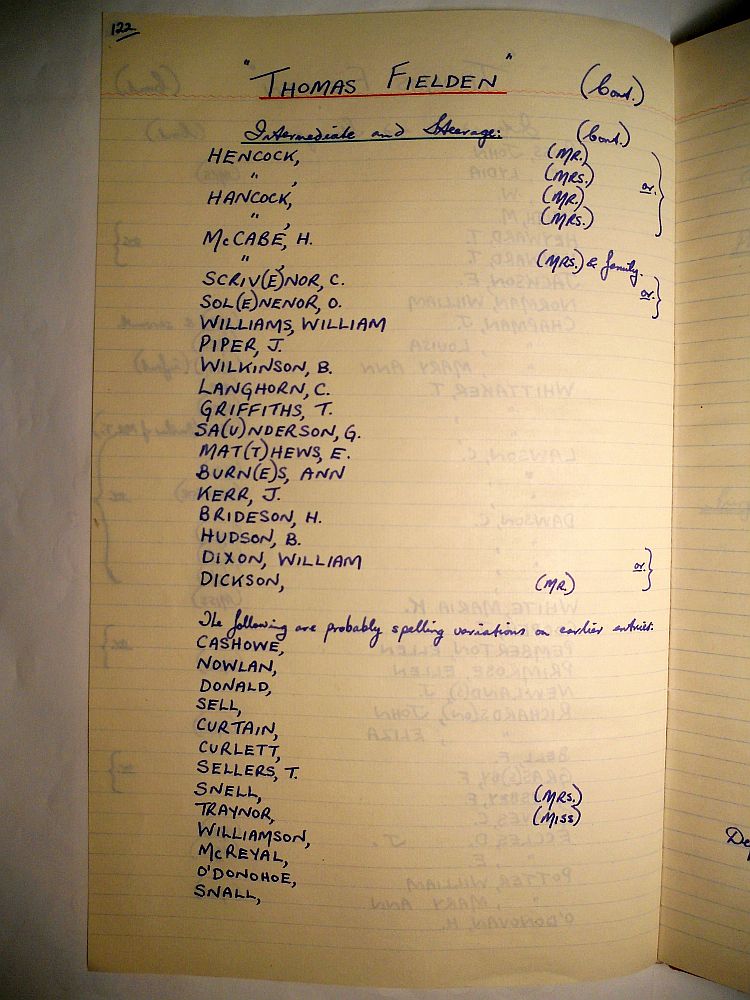 122
"THOMAS FIELDEN" (Cont.)
Intermediate and Steerage: (Cont.)
HENCOCK, (MR.)
" , (MRS.) or.
HANCOCK, (MR.)
" , (MRS.)
McCABE, H.
" , (MRS.) & family.
SCRIV(E)NOR, C. or.
SOL(E)NENOR, O.
WILLIAMS, WILLIAM
PIPER, J.
WILKINSON, B.
LANGHORN, C.
GRIFFITHS, T.
SA(U)NDERSON, G.
MAT(T)HEWS, E.
BURN(E)S, ANN
KERR, J.
BRIDESON, H.
HUDSON, B.
DIXON, WILLIAM or.
DICKSON, (MR.)
The following are probably spelling variations on earlier entries:
CASHOWE,
NOWLAN,
DONALD,
SELL,
CURTAIN,
CURLETT,
SELLERS, T.
SNELL, (MRS.)
TRAYNOR, (MISS)
WILLIAMSON,
McREYAL,
O'DONOHOE,
SNALL,